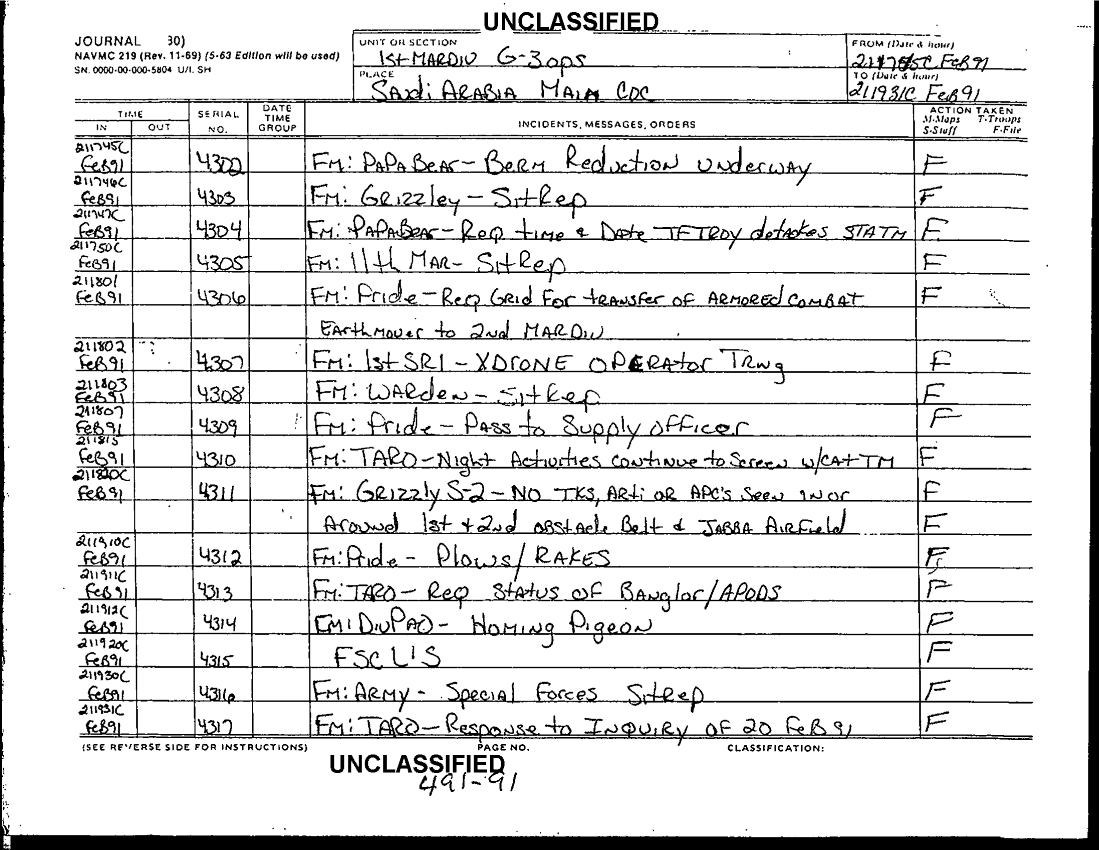 UNCLASSIFIED
JOURNAL 30)
NAVMC 219 (Rev. 11-69) (5-63 Edition will be used)
SN. 0000-00-000-5804 U/I. SH
UNIT OR SECTION
1st MARDIV G-3 ops
PLACE
SAudi ARABIA MAIN COC
FROM (Date & hour)
211745C FeB 91
TO (Date & hour)
211931C FeB 91
TIME
IN OUT
SERIAL NO.
DATE TIME GROUP
INCIDENTS, MESSAGES, ORDERS
ACTION TAKEN
M-Maps T-Troops
S-Staff F-File
211745C FeB91 4302 FM: PAPA BEAR - BERM Reduction underway F
211746C FeB91 4303 FM: GRIZZley - SitRep F
211747C FeB91 4304 FM: PAPABEAR - Req time & Date TFTROY detaches STATM F
211750C FeB91 4305 FM: 11th MAR - SitRep F
211801 FeB91 4306 FM: Pride - Req GRID FOR tRANSFER OF ARMORED COMBAT F
EARthmover to 2nd MARDIV
211802 FeB91 4307 FM: 1st SRI - XDRONE OPERATOR TRNg F
211803 FeB91 4308 FM: WARden - SitRep F
211807 FeB91 4309 FM: Pride - PASS to Supply officer F
211815 FeB91 4310 FM: TARO - Night Activities continue to Screen w/CAT TM F
211820C FeB91 4311 FM: GRIZZly S-2 - NO TKS, ARti OR APC's Seen IN or F
Around 1st & 2nd OBStAcle Belt & JABBA AIRField F
211910C FeB91 4312 FM: Pride - Plows/RAKES F
211911C FeB91 4313 FM: TARO - Req StAtus OF BANglor/APODS F
211912C FeB91 4314 FM: DIVPAO - HOMINg Pigeon F
211920C FeB91 4315 FSCL'S F
211930C FeB91 4316 FM: ARMY - Special Forces SitRep F
211931C FeB91 4317 FM: TARO - Response to INQUIRY OF 20 FeB 91 F
(SEE REVERSE SIDE FOR INSTRUCTIONS) PAGE NO. CLASSIFICATION:
UNCLASSIFIED
491-91